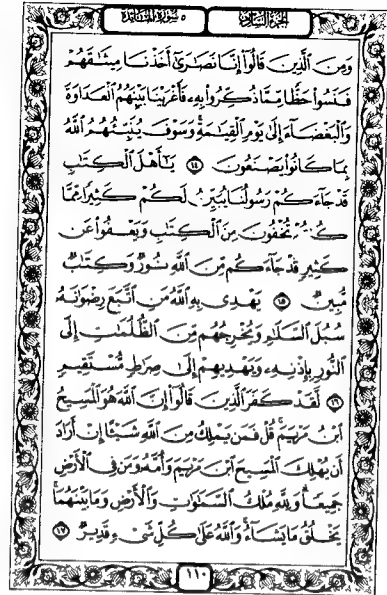 الجزء السادس
٥ سورة المائدة
وَمِنَ الَّذِينَ قَالُوٓا۟ إِنَّا نَصَـٰرَىٰٓ أَخَذْنَا مِيثَـٰقَهُمْ
فَنَسُوا۟ حَظًّا مِّمَّا ذُكِّرُوا۟ بِهِۦ فَأَغْرَيْنَا بَيْنَهُمُ الْعَدَاوَةَ
وَالْبَغْضَآءَ إِلَىٰ يَوْمِ الْقِيَـٰمَةِ ۚ وَسَوْفَ يُنَبِّئُهُمُ اللَّهُ
بِمَا كَانُوا۟ يَصْنَعُونَ ١٤ يَـٰٓأَهْلَ الْكِتَـٰبِ
قَدْ جَآءَكُمْ رَسُولُنَا يُبَيِّنُ لَكُمْ كَثِيرًا مِّمَّا
كُنتُمْ تُخْفُونَ مِنَ الْكِتَـٰبِ وَيَعْفُوا۟ عَن
كَثِيرٍ ۚ قَدْ جَآءَكُم مِّنَ اللَّهِ نُورٌ وَكِتَـٰبٌ
مُّبِينٌ ١٥ يَهْدِى بِهِ اللَّهُ مَنِ اتَّبَعَ رِضْوَٰنَهُۥ
سُبُلَ السَّلَـٰمِ وَيُخْرِجُهُم مِّنَ الظُّلُمَـٰتِ إِلَى
النُّورِ بِإِذْنِهِۦ وَيَهْدِيهِمْ إِلَىٰ صِرَٰطٍ مُّسْتَقِيمٍ
١٦ لَّقَدْ كَفَرَ الَّذِينَ قَالُوٓا۟ إِنَّ اللَّهَ هُوَ الْمَسِيحُ
ابْنُ مَرْيَمَ ۚ قُلْ فَمَن يَمْلِكُ مِنَ اللَّهِ شَيْـًٔا إِنْ أَرَادَ
أَن يُهْلِكَ الْمَسِيحَ ابْنَ مَرْيَمَ وَأُمَّهُۥ وَمَن فِى الْأَرْضِ
جَمِيعًا ۗ وَلِلَّهِ مُلْكُ السَّمَـٰوَٰتِ وَالْأَرْضِ وَمَا بَيْنَهُمَا ۚ
يَخْلُقُ مَا يَشَآءُ ۚ وَاللَّهُ عَلَىٰ كُلِّ شَىْءٍ قَدِيرٌ ١٧
١١٠